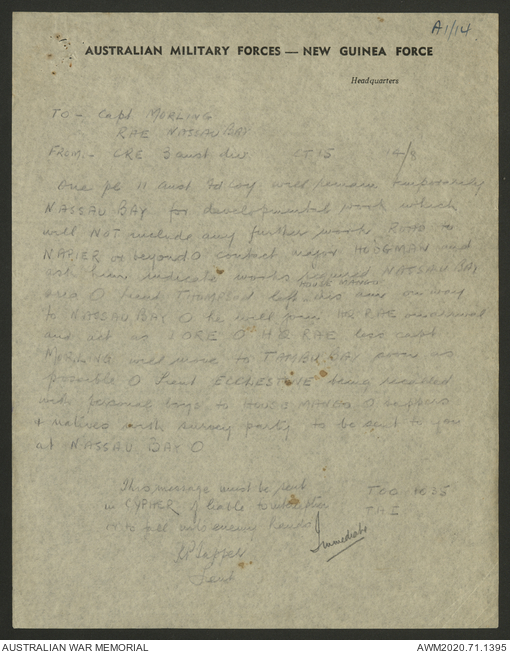 A1/14
AUSTRALIAN MILITARY FORCES — NEW GUINEA FORCE
Headquarters
TO - Capt MORLING
RAE NASSAU BAY
FROM - CRE 3 aust div CT 15 14/8
One pl 11 aust Fd Coy will remain temporarily
NASSAU BAY for developmental work which
will NOT include any further work ROAD to
NAPIER or beyond O contact major HODGMAN and
ask him indicate works required NASSAU BAY
area O Lieut THOMPSON left HOUSE MANGO on way
to NASSAU BAY O he will join HQ RAE on arrival
and act as O HQ RAE less capt
MORLING will move to TAMBU BAY soon as
possible O Lieut ECCLESTONE being recalled
with personal to HOUSE MANGO O
+ natives with survey party to be sent to you
at NASSAU BAY O
This message must be sent
in CYPHER if liable to interception
or to fall into enemy hands
TOO 1625
THI
Immediate
Lieut
AUSTRALIAN WAR MEMORIAL
AWM2020.71.1395